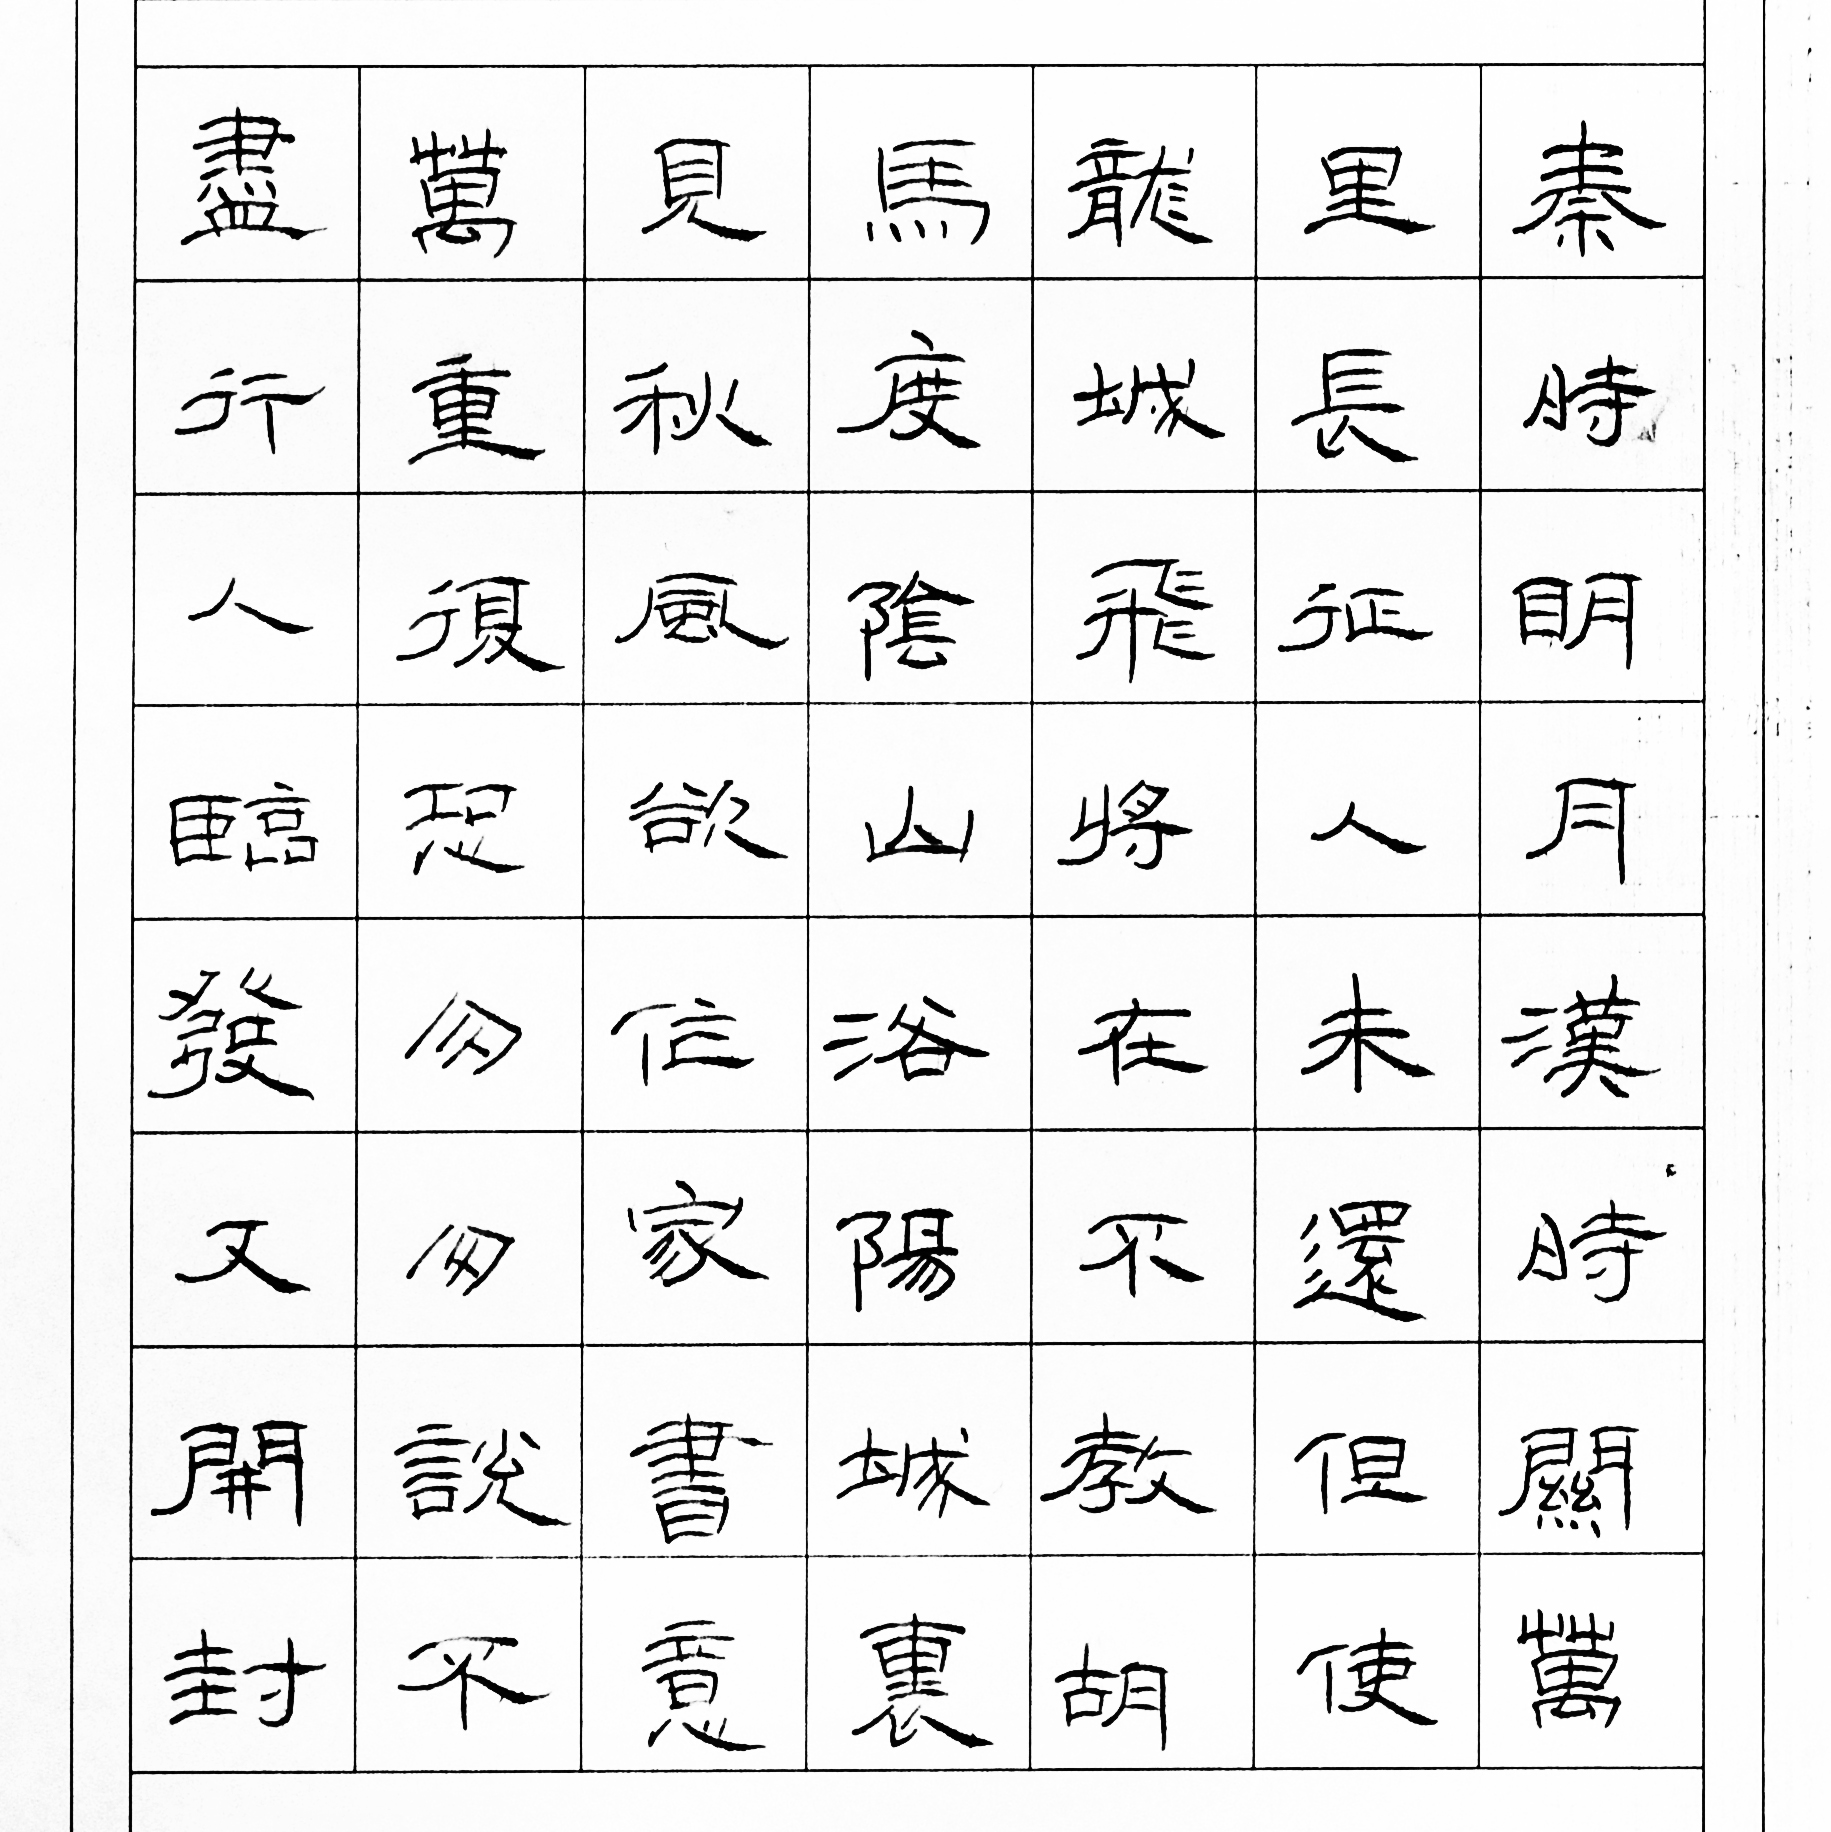 秦時明月漢時關萬
里長征人未還但使
龍城飛將在不教胡
馬度陰山洛陽城裏
見秋風欲作家書意
萬重復恐匆匆說不
盡行人臨發又開封